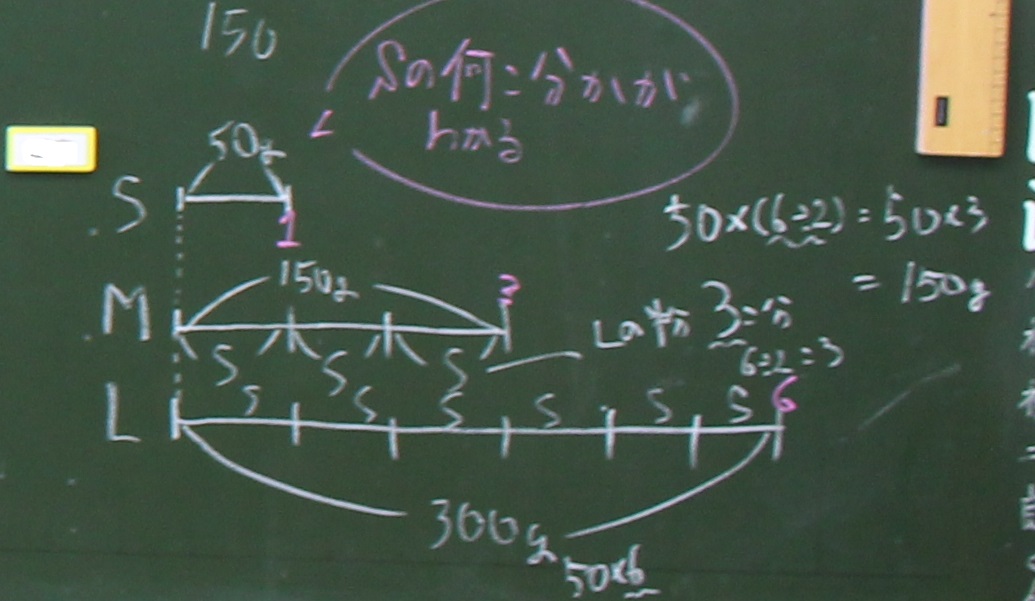 150
Sの何こ分かが
わかる
50g
S
1
50×(6÷2)=50×3
=150g
150g
3
M
Lの半分 3こ分
6÷2=3
S S S
S S S S S S 6
L
300g
50×6